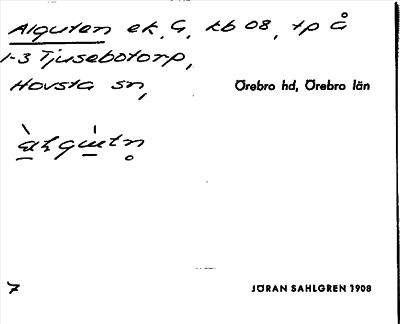 Alguten ek. G, kb 08, tp å
1-3 Tjusebotorp,
Hovsta sn,
Örebro hd, Örebro län
7
JÖRAN SAHLGREN 1908